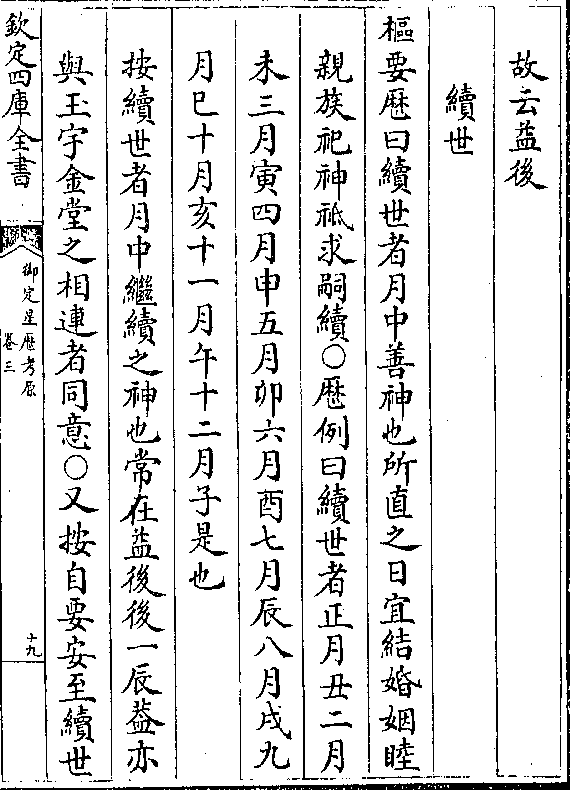 故云益後
續世
樞要厯曰續世者月中善神也所直之日宜結婚姻睦
親族祀神祇求嗣續○厯例曰續世者正月丑二月
未三月寅四月申五月卯六月酉七月辰八月戌九
月巳十月亥十一月午十二月子是也
按續世者月中繼續之神也常在益後後一辰葢亦
與玉宇金堂之相連者同意○又按自要安至續世
欽定四庫全書
御定星厯考原
卷三
十九